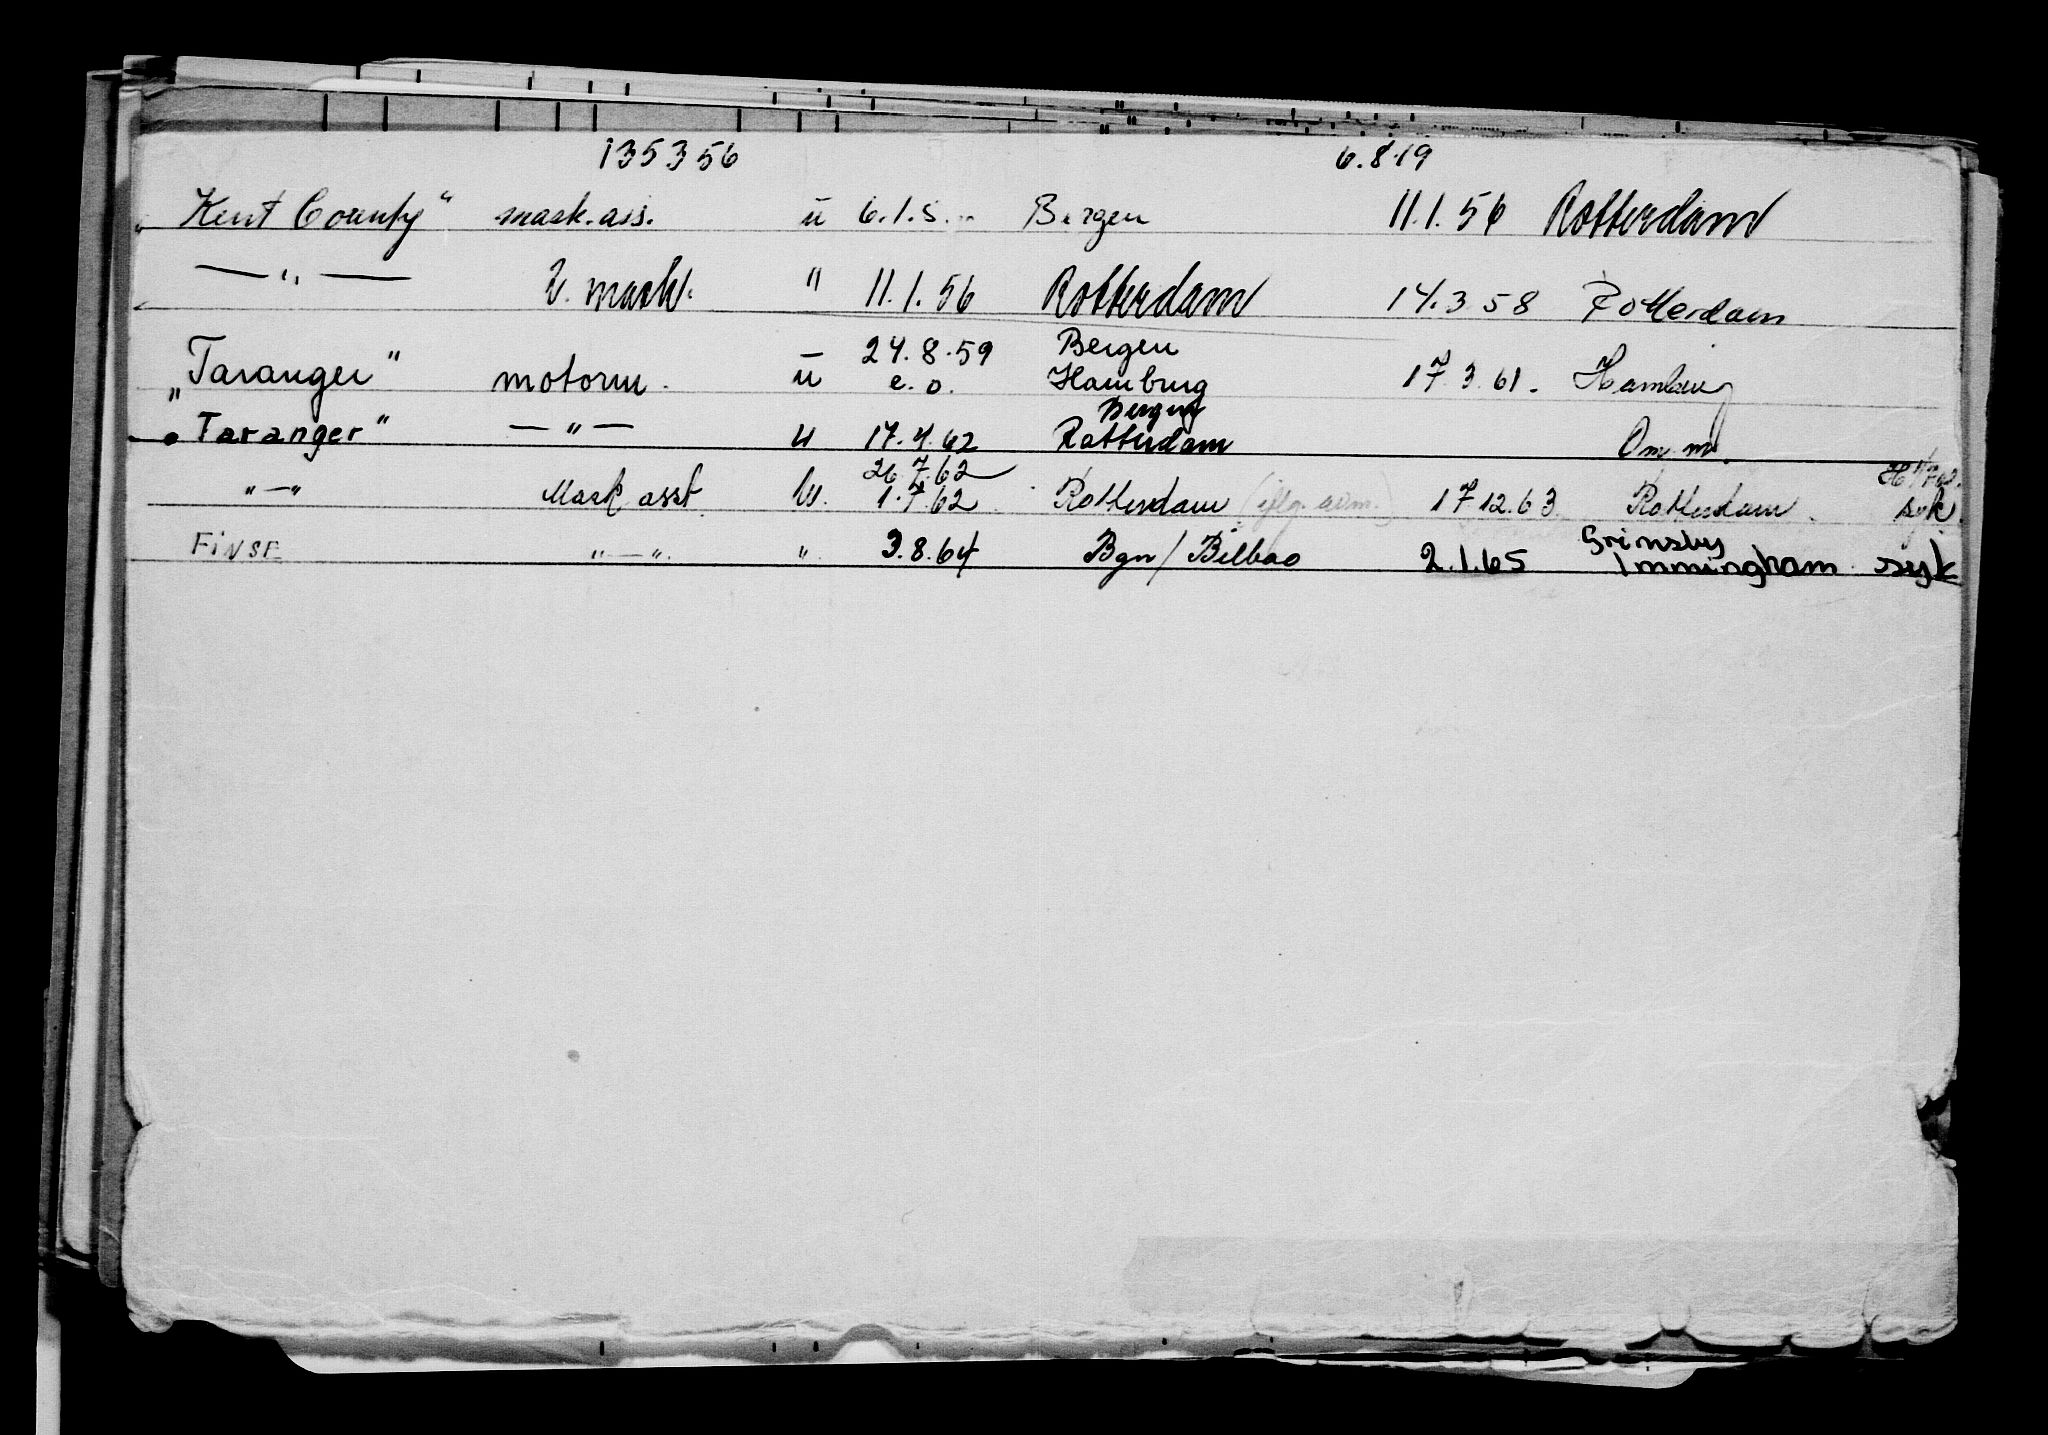 135356 6.8.19
„Kent County“ mask. ass. ü 6.1.5 Bergen 11.1.56 Rotterdam
—„— 2. mask. " 11.1.56 Rotterdam 14.3 58 Rotterdam
24.8.59 Bergen
„Taranger“ motorm. ü e.o. Hamburg 17.3.61. Hamburg
Bergen
„Taranger“ —„— u 17.4.62 Rotterdam Om.m.
26.7.62
"—" Mask asst. u. 1.7.62 Rotterdam 17 12.63 Rotterdam syk.
Grimsby
FINSE "—" " 3.8.64 Bgn/Bilbao 2.1.65 Immingham syk